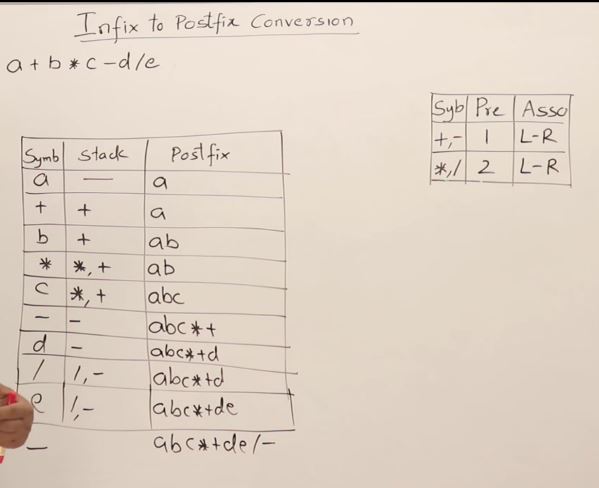 Infix to Postfix Conversion
a + b * c - d / e
Syb Pre Asso
+,- 1 L-R
*,/ 2 L-R
Symb Stack Postfix
a — a
+ + a
b + ab
* *, + ab
c *, + abc
- - abc*+
d - abc*+d
/ /,- abc*+d
e /,- abc*+de
— abc*+de/-